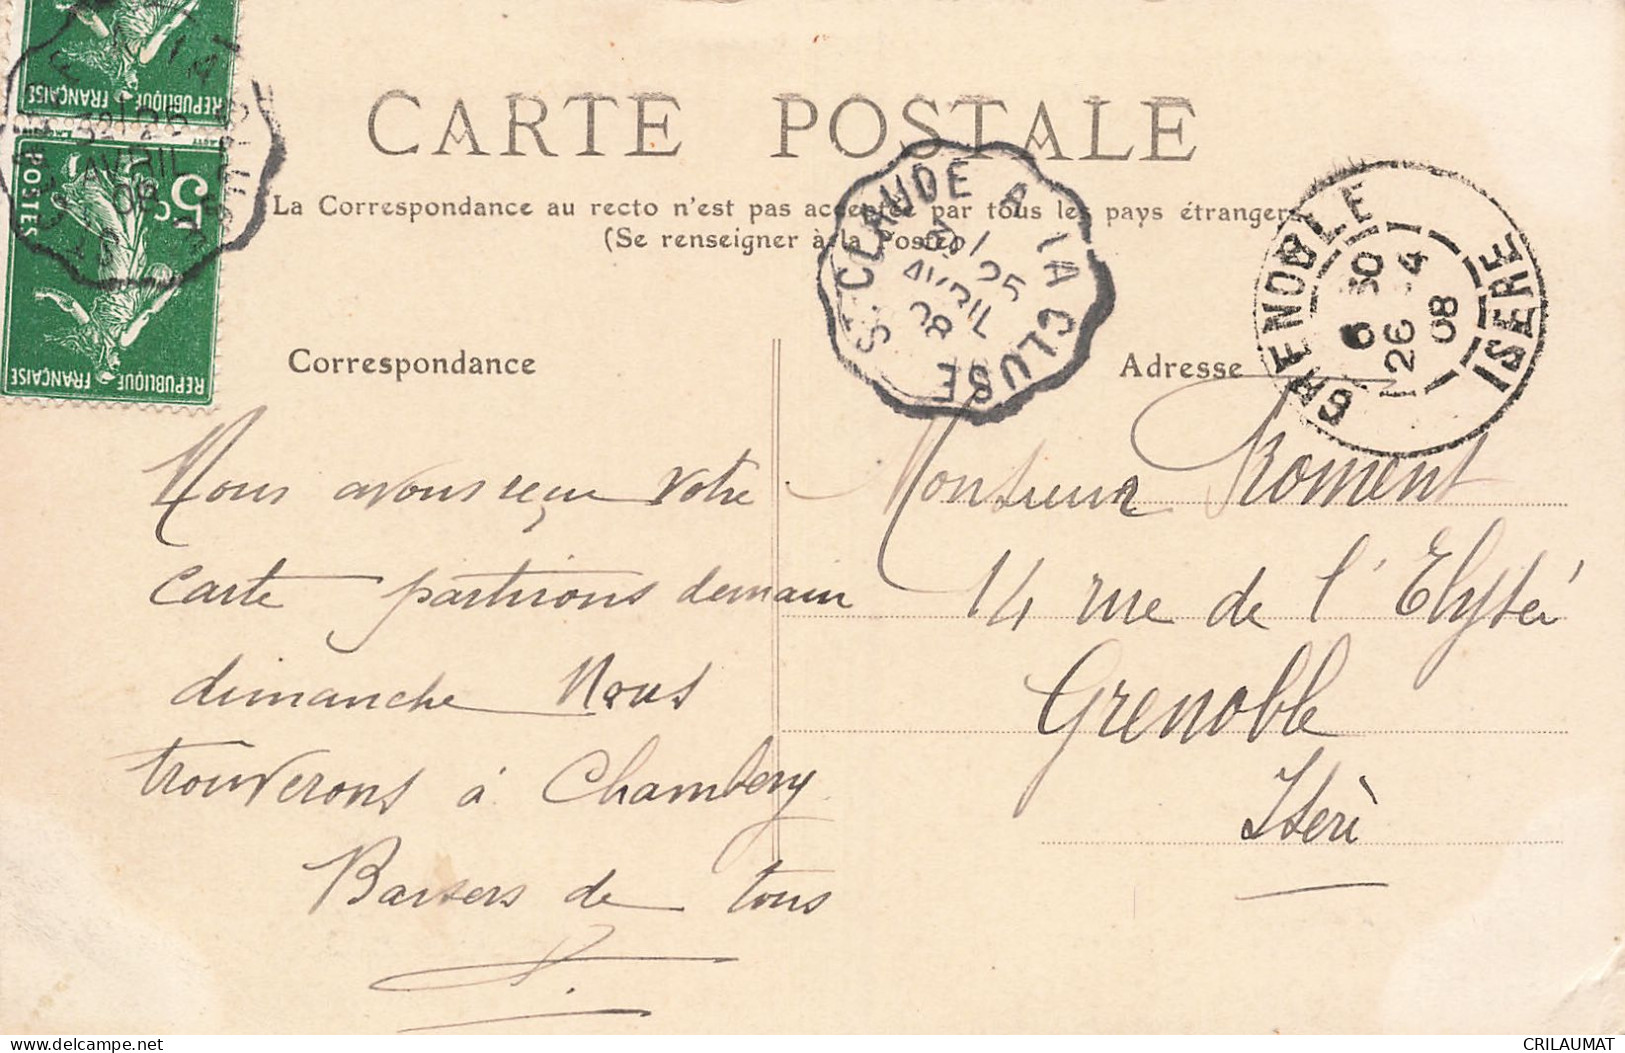 CARTE POSTALE
La Correspondance au recto n'est pas acceptée par tous les pays étrangers
(Se renseigner à la Poste)
REPUBLIQUE FRANÇAISE
POSTES
5c
REPUBLIQUE FRANÇAISE
25
AVRIL
08
ST-CLAUDE A LA CLUSE
25
AVRIL
08
GRENOBLE
ISERE
6 30
26 - 4
08
Correspondance
Adresse
Nous avons reçu votre
carte partirons demain
dimanche Nous
trouverons à Chambery
Baisers de tous
Monsieur Roment
14 rue de l'Elysée
Grenoble
Isère
CRILAUMAT